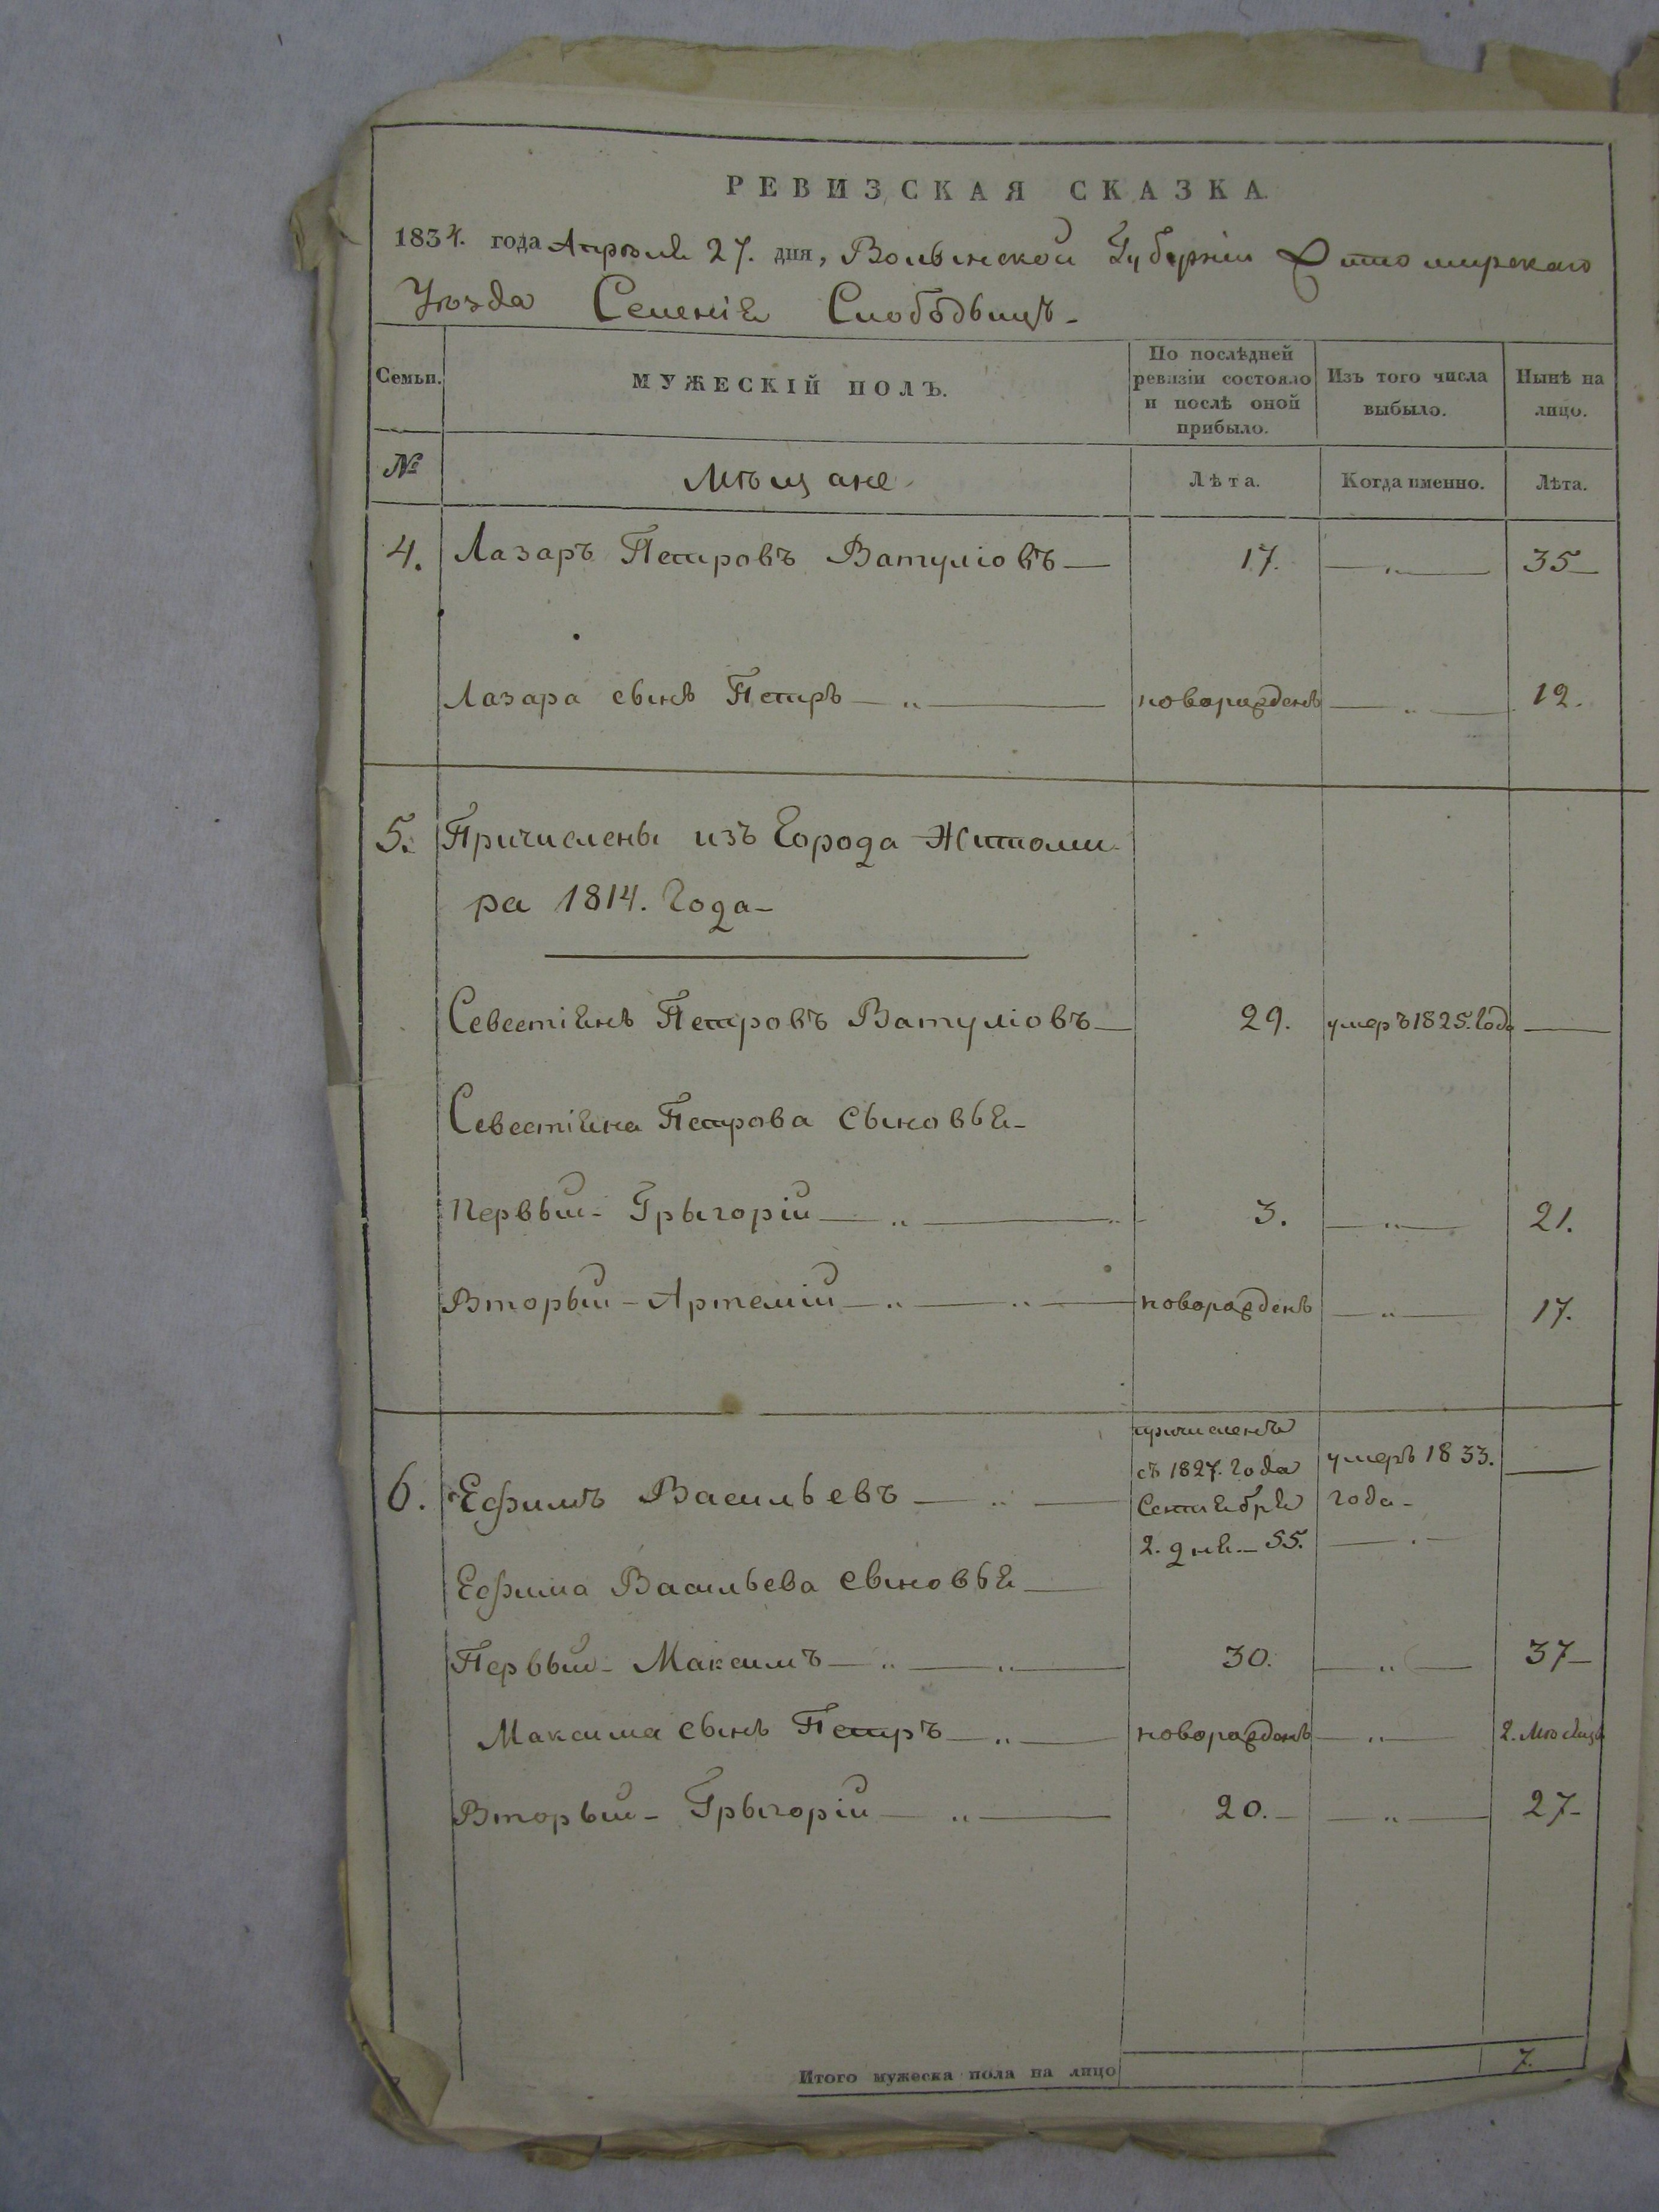 РЕВИЗСКАЯ СКАЗКА
1834. года Апрѣля 27. дня, Волынской Губерніи Житомирскаго
Уѣзда Селенія
Семьи.
МУЖЕСКІЙ ПОЛЪ.
По послѣдней
ревизіи состояло
и послѣ оной
прибыло.
Изъ того числа
выбыло.
Нынѣ на
лицо.
№
Мѣщане
Лѣта.
Когда именно.
Лѣта.
4. Лазаръ Петровъ Ватуліовъ 17. 35
Лазара сынъ Петръ новорожденъ 12.
5. Причислены изъ Города Житоми
ра 1814. Года
Севестіянъ Петровъ Ватуліовъ 29. умеръ 1825. Года
Севестіяна Петрова сыновья
Первый Грыгорій 3. 21.
Вторый Артемій новорожденъ 17.
причисленъ
съ 1827. года умеръ 1833.
6. Ефимъ Васильевъ Сентября года
2. дня 55.
Ефима Васильева сыновья
Первый Максимъ 30. 37
Максима сынъ Петръ новорожденъ 2. Мѣсяца
Вторый Грыгорій 20. 27
Итого мужеска пола на лицо 7.